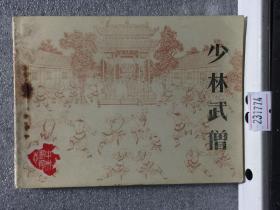 少林武僧
231774